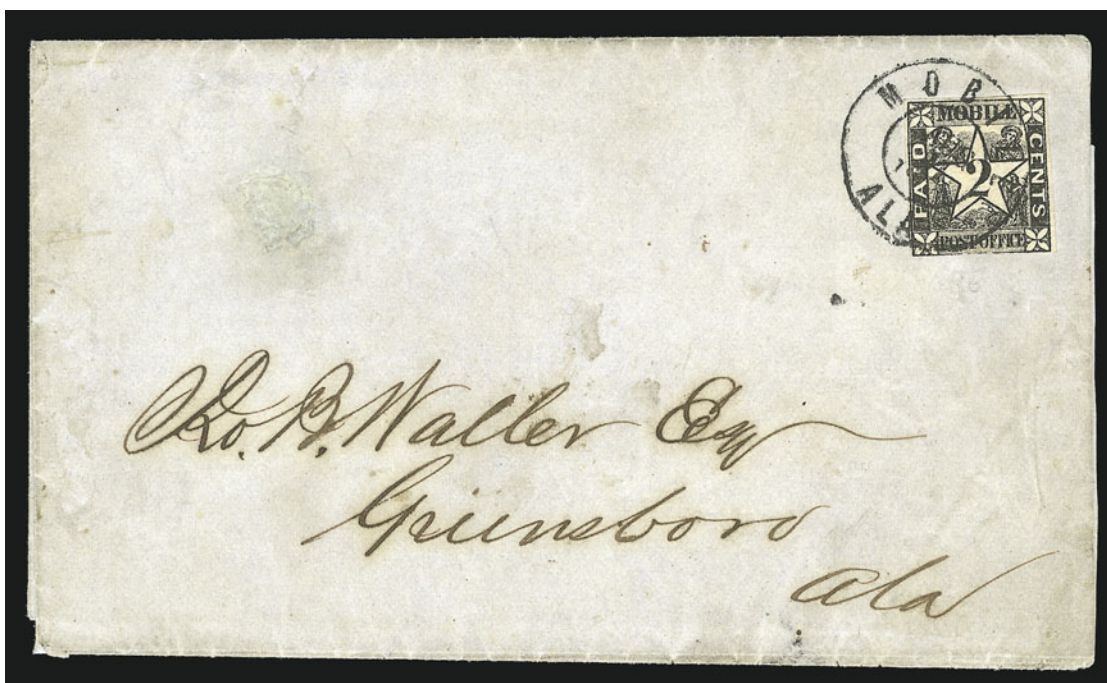 MOB
ALA
MOBILE
PAID
2
CENTS
POST OFFICE
Ro. B. Waller Esq
Greensboro
Ala